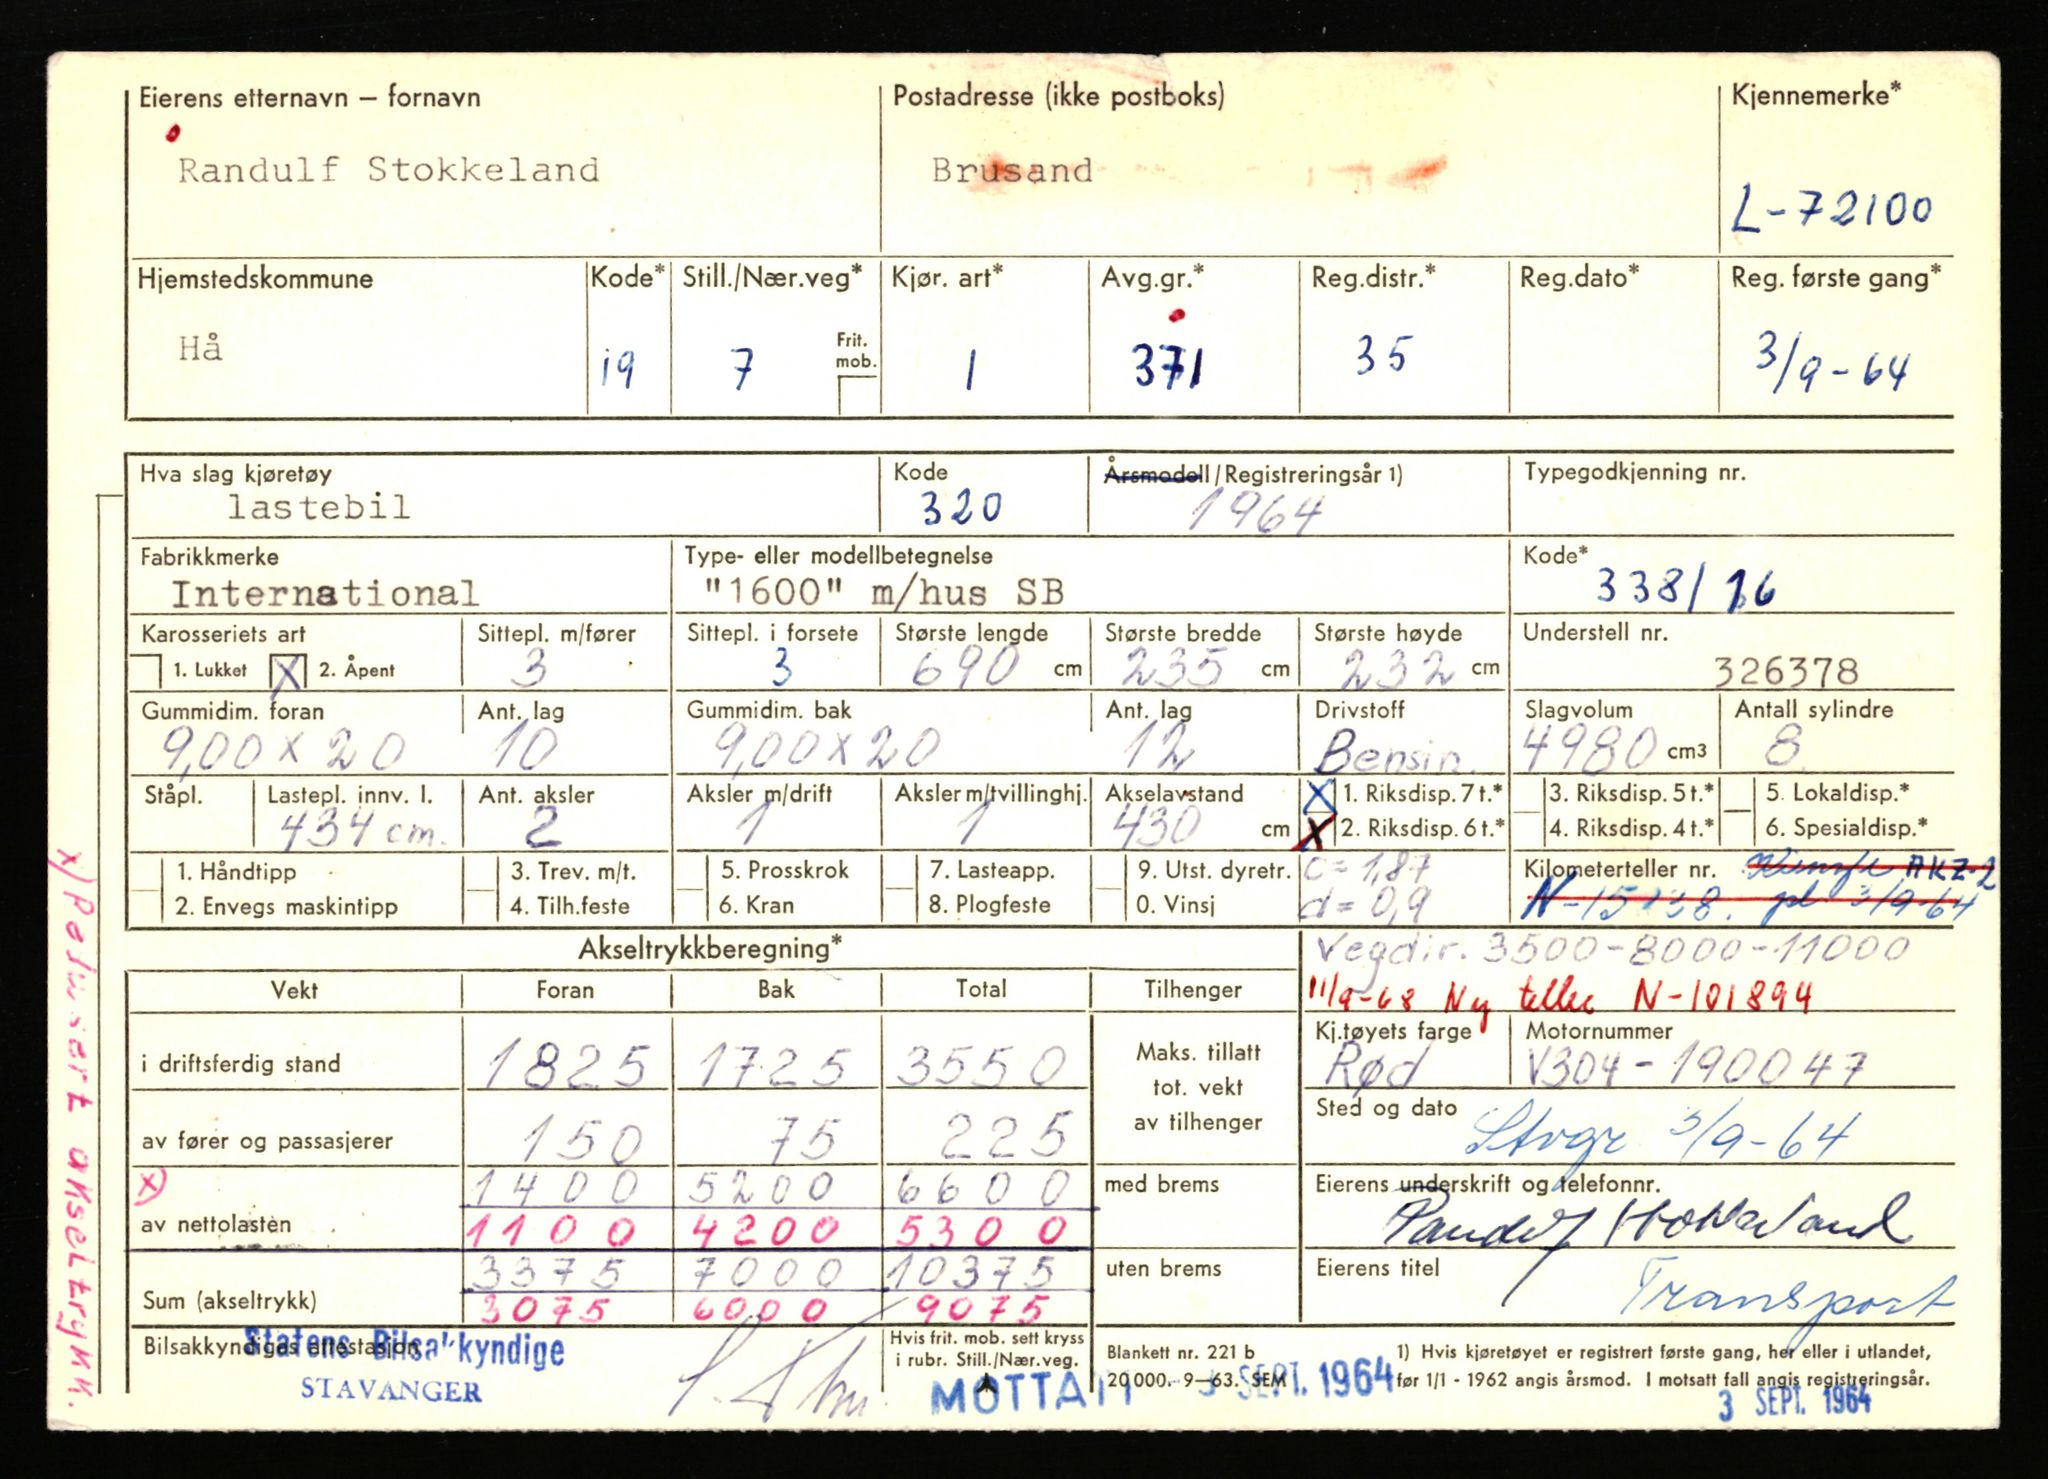 Eierens etternavn – fornavn Postadresse (ikke postboks) Kjennemerke*
Randulf Stokkeland Brusand
L-72100
Hjemstedskommune Kode* Still./Nær.veg* Kjør. art* Avg.gr.* Reg.distr.* Reg.dato* Reg. første gang*
Hå 19 7 Frit. mob. 1 371 35 3/9-64
Hva slag kjøretøy Kode Årsmodell/Registreringsår 1) Typegodkjenning nr.
lastebil 320 1964
Fabrikkmerke Type- eller modellbetegnelse Kode*
International "1600" m/hus SB 338/16
Karosseriets art Sittepl. m/fører Sittepl. i forsete Største lengde Største bredde Største høyde Understell nr.
1. Lukket X 2. Åpent 3 3 690 cm 235 cm 232 cm 326378
Gummidim. foran Ant. lag Gummidim. bak Ant. lag Drivstoff Slagvolum Antall sylindre
9,00 x 20 10 9,00 x 20 12 Bensin. 4980 cm3 8
Ståpl. Lastepl. innv. l. Ant. aksler Aksler m/drift Aksler m/tvillinghj. Akselavstand X 1. Riksdisp. 7 t.* 3. Riksdisp. 5 t.* 5. Lokaldisp.*
434 cm. 2 1 1 430 cm X 2. Riksdisp. 6 t.* 4. Riksdisp. 4 t.* 6. Spesialdisp.*
1. Håndtipp 3. Trev. m/t. 5. Prosskrok 7. Lasteapp. 9. Utst. dyretr. c = 1,87 Kilometerteller nr. Kienzle AKZ-2
2. Envegs maskintipp 4. Tilh.feste 6. Kran 8. Plogfeste 0. Vinsj d = 0,9 3/9-64
Akseltrykkberegning* Vegdir. 3500-8000-11000
Vekt Foran Bak Total Tilhenger 11/9-68 Ny teller N-101894
Kj.tøyets farge Motornummer
i driftsferdig stand 1825 1725 3550 Maks. tillatt tot. vekt av tilhenger Rød V304-190047
Sted og dato
av fører og passasjerer 150 75 225 Stvgr 3/9-64
x) 1400 5200 6600 med brems Eierens underskrift og telefonnr.
av nettolasten 1100 4200 5300 Randulf Stokkeland
3375 7000 10375 uten brems Eierens titel
Sum (akseltrykk) 3075 6000 9075 Transport
Bilsakkyndiges attestasjon Hvis frit. mob. sett kryss Blankett nr. 221 b 1) Hvis kjøretøyet er registrert første gang, her eller i utlandet,
Statens Bilsakkyndige i rubr. Still./Nær.veg. 20 000. 9–63. SEM før 1/1 - 1962 angis årsmod. I motsatt fall angis registreringsår.
STAVANGER MOTTATT 3 SEPT. 1964
3 SEPT. 1964
x) Redusert akseltrykk.